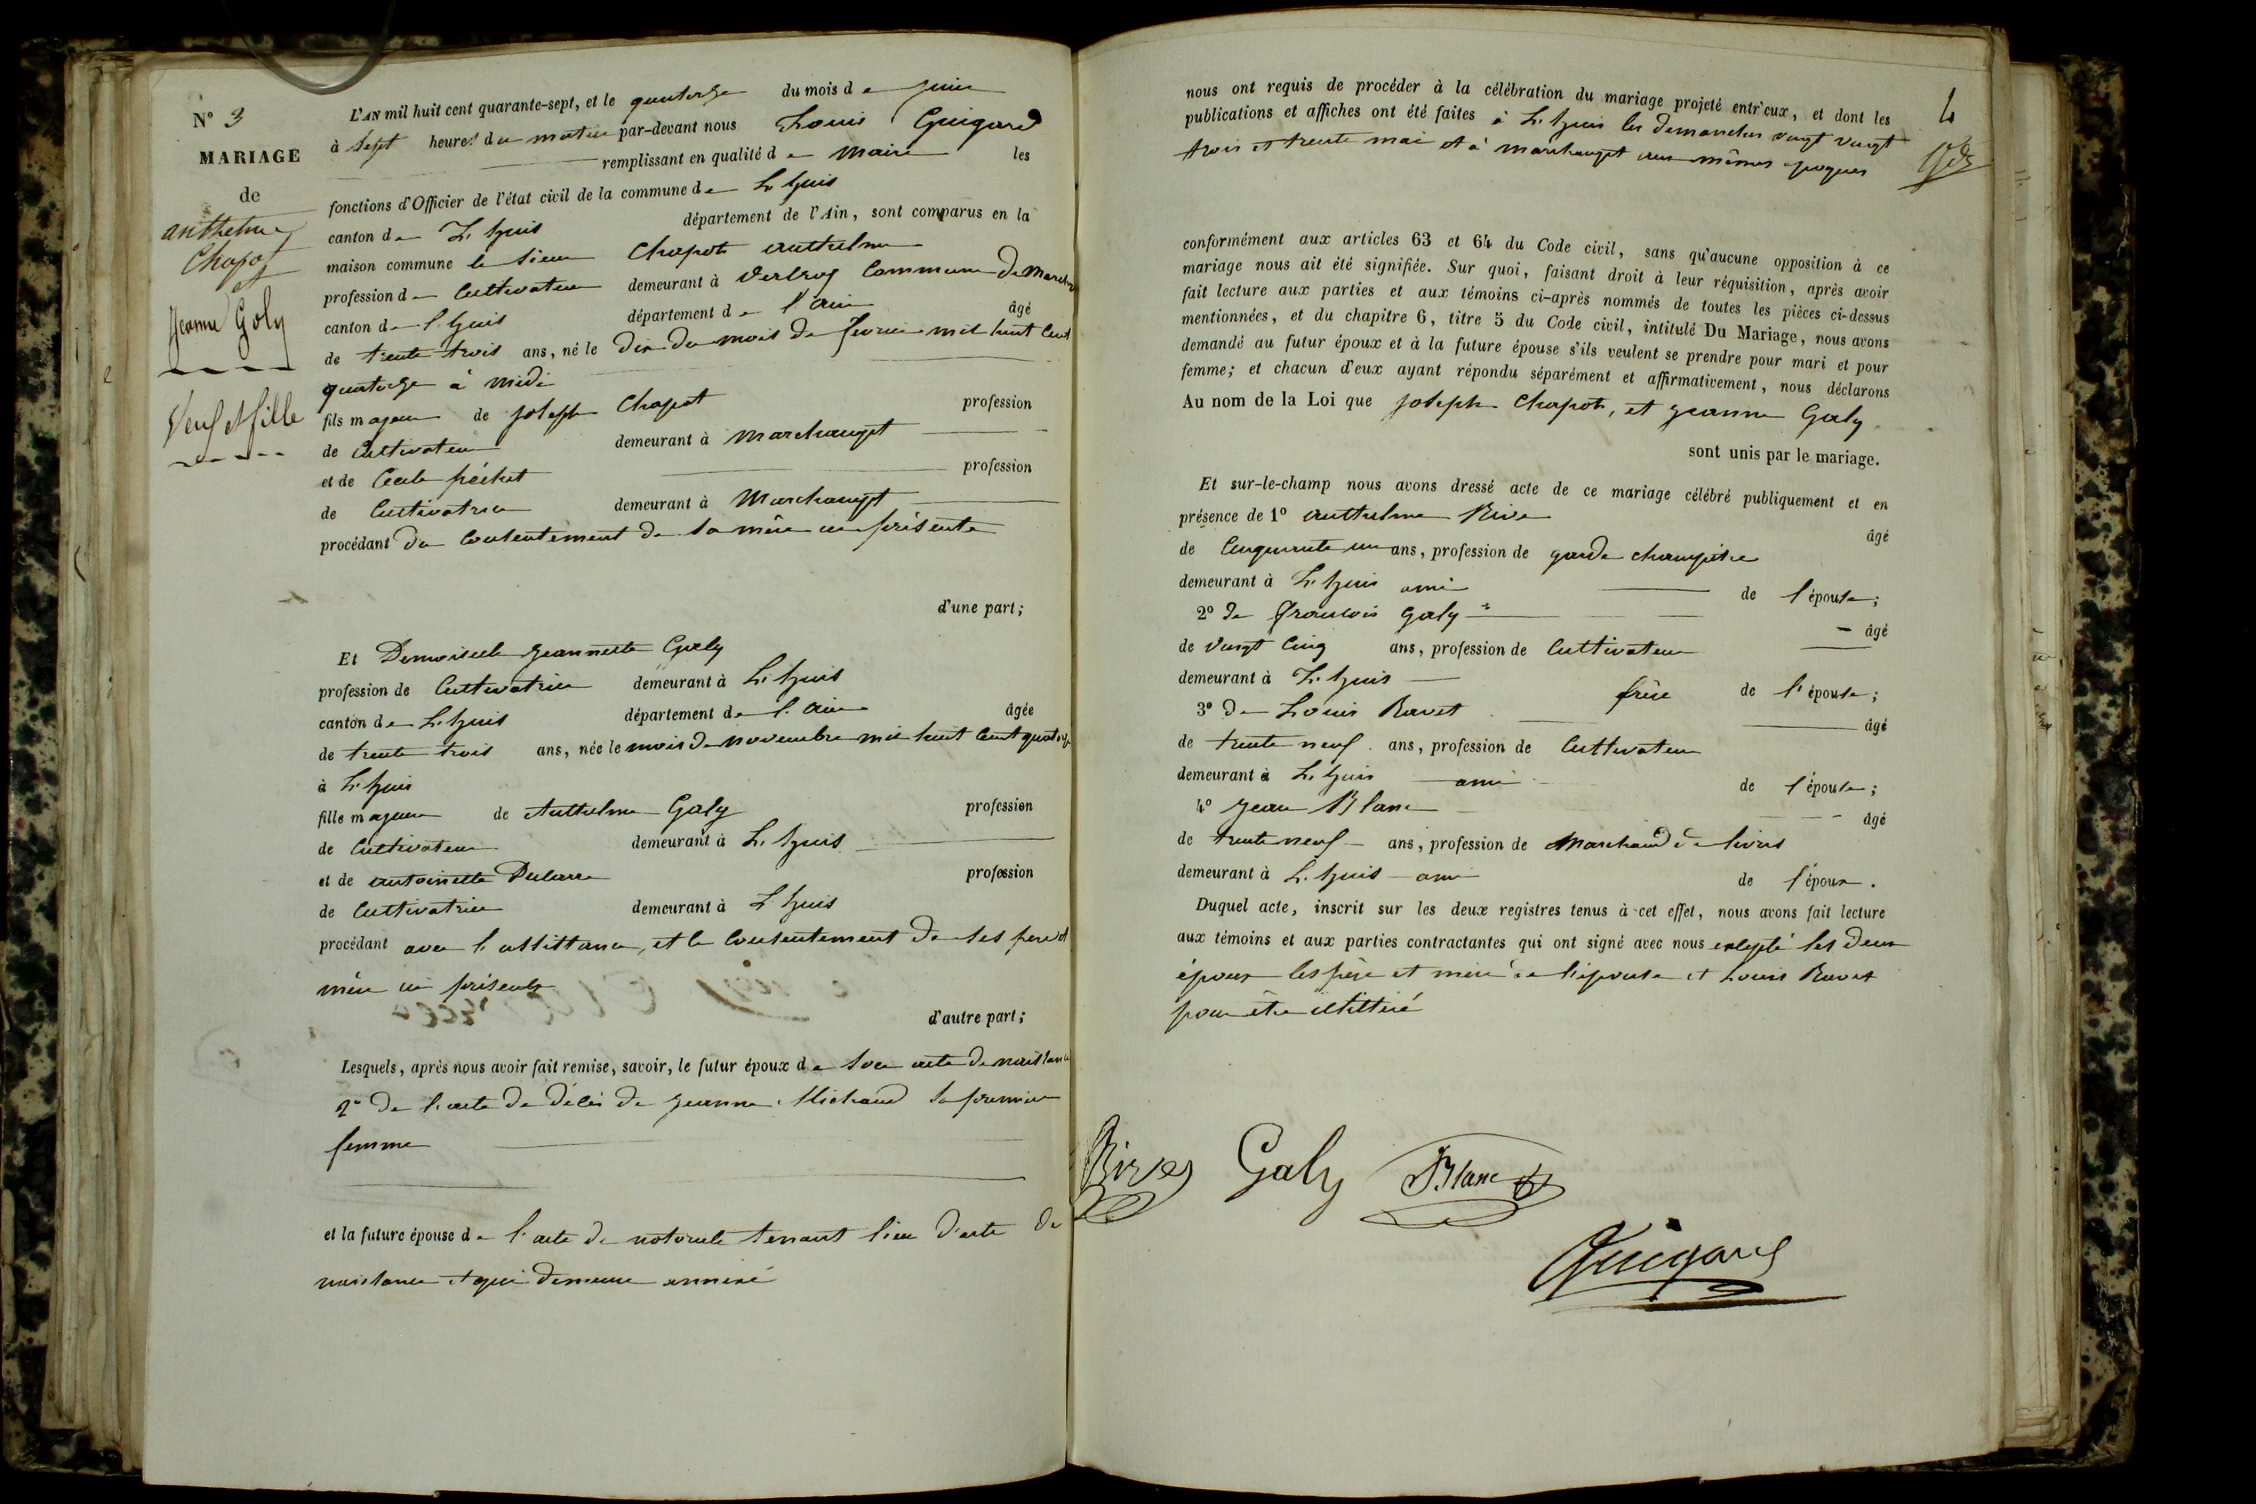 N° 3
MARIAGE
de
anthelme
Chapot
et
Jeanne Goly
Veuf et fille
L'AN mil huit cent quarante-sept, et le quatorze du mois de juin
à sept heures du matin par-devant nous Louis Guigard
remplissant en qualité de maire les
fonctions d'Officier de l'état civil de la commune de L'huis
canton de L'huis département de l'Ain, sont comparus en la
maison commune le sieur Chapot anthelme
profession de Cultivateur demeurant à Commune de March
canton de L'huis département de l'ain âgé
de trente trois ans, né le dix du mois de février mil huit cent
quatorze à midi
fils majeur de joseph Chapot profession
de Cultivateur demeurant à marchampt
et de Cecile péchet profession
de Cultivatrice demeurant à Marchampt
procédant du Consentement de sa mère ici présente
d'une part;
Et Demoiselle jeannette Goly
profession de Cultivatrice demeurant à L'huis
canton de L'huis département de l'ain âgée
de trente trois ans, née le mois de novembre mil huit cent quatorze
à L'huis
fille majeure de Anthelme Goly profession
de Cultivateur demeurant à L'huis
et de antoinette profession
de Cultivatrice demeurant à L'huis
procédant avec l'assistance, et le Consentement de ses père et
mère ici présents
d'autre part;
Lesquels, après nous avoir fait remise, savoir, le futur époux de son acte de naissance
2° de l'acte de décès de jeanne Michaud sa première
femme
et la future épouse de l'acte de notoriété tenant lieu d'acte de
naissance et qui demeure annexé
4
nous ont requis de procéder à la célébration du mariage projeté entr'eux, et dont les
publications et affiches ont été faites à L'huis les dimanches vingt vingt
trois et trente mai et à marchampt aux mêmes époques
conformément aux articles 63 et 64 du Code civil, sans qu'aucune opposition à ce
mariage nous ait été signifiée. Sur quoi, faisant droit à leur réquisition, après avoir
fait lecture aux parties et aux témoins ci-après nommés de toutes les pièces ci-dessus
mentionnées, et du chapitre 6, titre 5 du Code civil, intitulé Du Mariage, nous avons
demandé au futur époux et à la future épouse s'ils veulent se prendre pour mari et pour
femme; et chacun d'eux ayant répondu séparément et affirmativement, nous déclarons
Au nom de la Loi que joseph Chapot, et jeanne Galy
sont unis par le mariage.
Et sur-le-champ nous avons dressé acte de ce mariage célébré publiquement et en
présence de 1° anthelme Rive
âgé
de Cinquante un ans, profession de garde champêtre
demeurant à L'huis ami de l'épouse;
2° de françois Galy
âgé
de vingt Cinq ans, profession de Cultivateur
demeurant à L'huis frère de l'épouse;
3° de Louis Ravet
âgé
de trente neuf ans, profession de Cultivateur
demeurant à L'huis ami de l'épouse;
4° jean Blanc
âgé
de trente neuf ans, profession de Marchand de
demeurant à L'huis ami de l'époux.
Duquel acte, inscrit sur les deux registres tenus à cet effet, nous avons fait lecture
aux témoins et aux parties contractantes qui ont signé avec nous excepté les deux
époux les père et mère de l'épouse et Louis Ravet
pour être illittiré
Rives Galy Blanc
Guigard